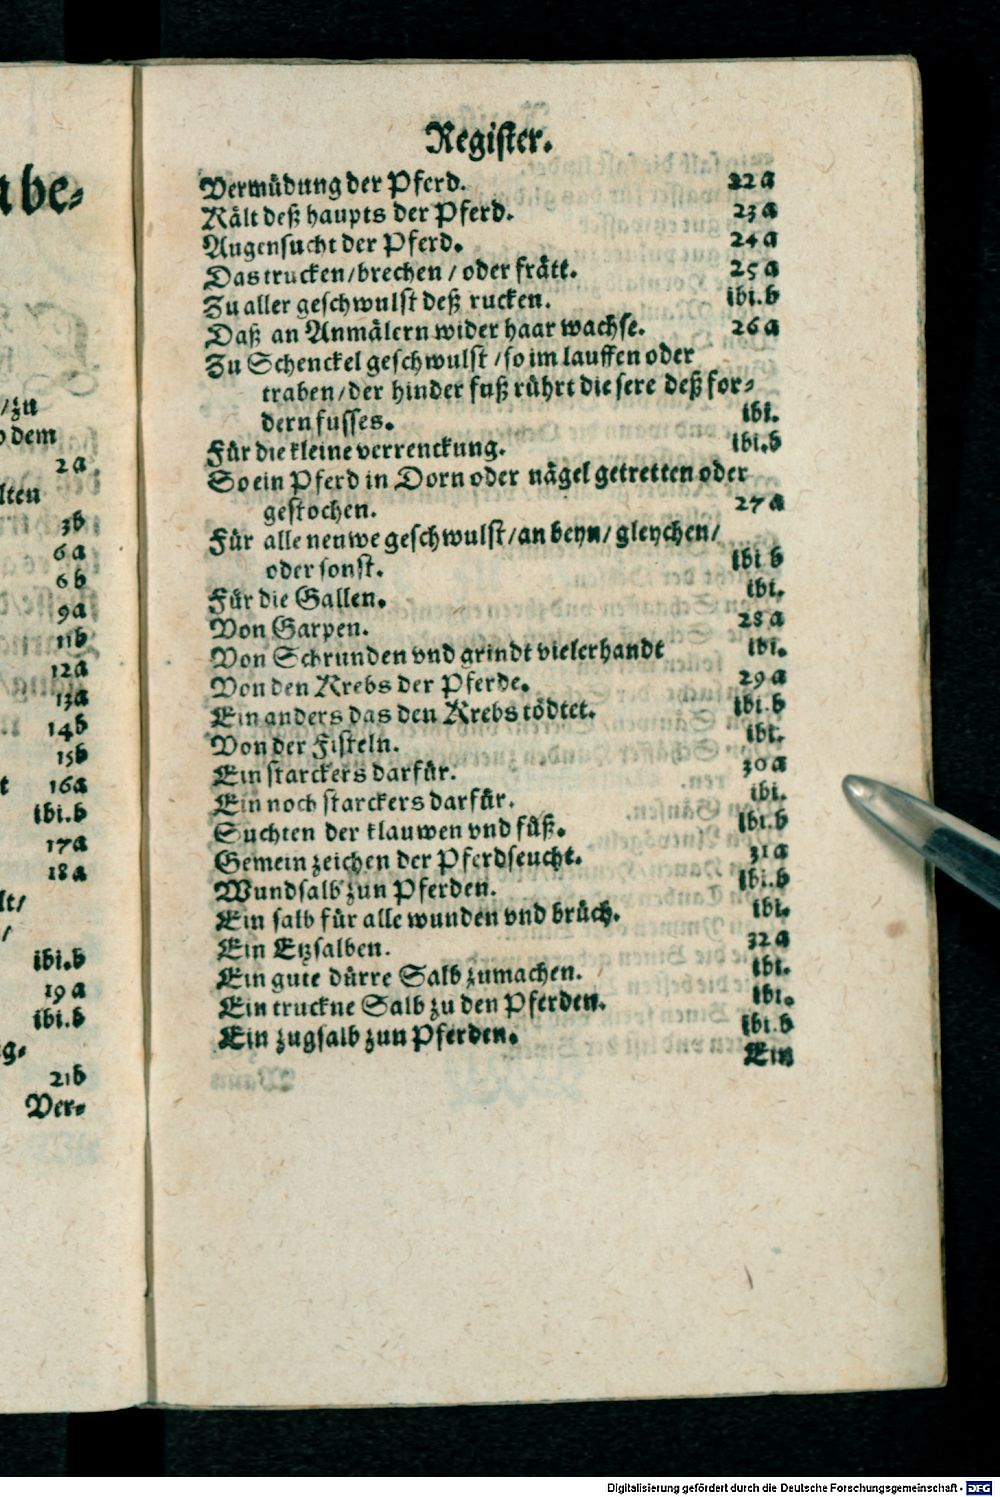 a be⸗
/zu
dem
2a
lten
3b
6a
6b
9a
11b
12a
13a
14b
15b
t 16a
ibi.b
17a
18a
lt/
/
ibi.b
19a
ibi.b
g⸗
21b
Ver⸗
Register.
Vermüdung der Pferd. 22a
Kält deß haupts der Pferd. 23a
Augensucht der Pferd. 24a
Das trucken/brechen/ oder frätt. 25a
Zu aller geschwulst deß rucken. ibi.b
Daß an Anmälern wider haar wachse. 26a
Zu Schenckel geschwulst/so im lauffen oder
traben/der hinder fuß rührt die sere deß for⸗
dern fusses. ibi.
Für die kleine verrenckung. ibi.b
So ein Pferd in Dorn oder nägel getretten oder
gestochen. 27a
Für alle neuwe geschwulst/an beyn/gleychen/
oder sonst. ibi b
Für die Gallen. ibi.
Von Garpen. 28a
Von Schrunden vnd grindt vielerhandt ibi.
Von den Krebs der Pferde. 29a
Ein anders das den Krebs tödtet. ibi.b
Von der Fisteln. ibi.
Ein starckers darfür. 30a
Ein noch starckers darfür. ibi.
Suchten der klauwen vnd füß. ibi.b
Gemein zeichen der Pferdseucht. 31a
Wundsalb zun Pferden. ibi.b
Ein salb für alle wunden vnd brüch. ibi.
Ein Etzsalben. 32a
Ein gute dürre Salb zumachen. ibi.
Ein truckne Salb zu den Pferden. ibi.
Ein zugsalb zun Pferden. ibi.b
Ein
Digitalisierung gefördert durch die Deutsche Forschungsgemeinschaft - DFG